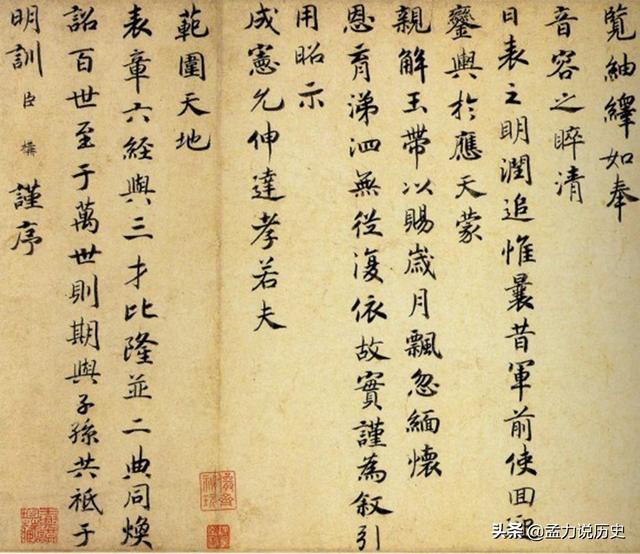 覧紬繹如奉
音容之睟清
日表之明潤追惟曩昔軍前使回
鑾輿於應天蒙
親解玉帶以賜嵗月飄忽緬懷
恩育涕泗無從復依故實謹為叙引
用昭示
成憲允伸達孝若夫
範圍天地
表章六經與三才比隆並二典同煥
詔百世至于萬世則期與子孫共祇于
明訓臣構謹序
头条@孟力说历史